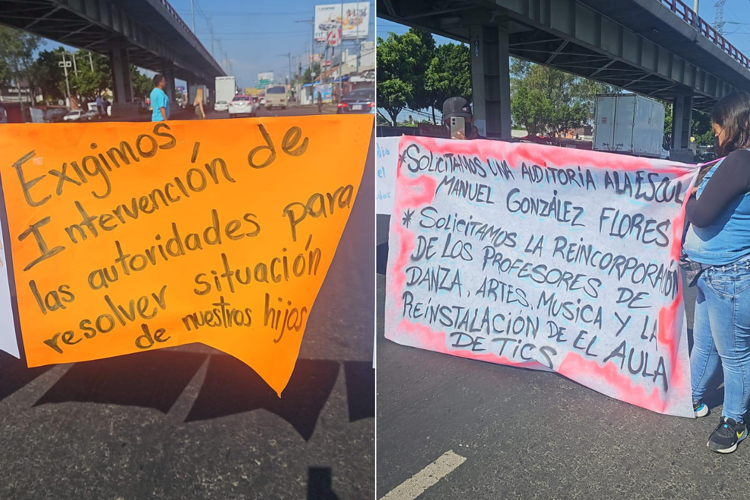 Exigimos
Intervención de
las autoridades para
resolver situación
de nuestros hijos
* SOLICITAMOS UNA AUDITORIA A LA ESCUE
MANUEL GONZÁLEZ FLORES
* SOLICITAMOS LA REINCORPORACIÓN
DE LOS PROFESORES DE
DANZA, ARTES, MUSICA Y LA
REINSTALACIÓN DE EL AULA
DE TICS